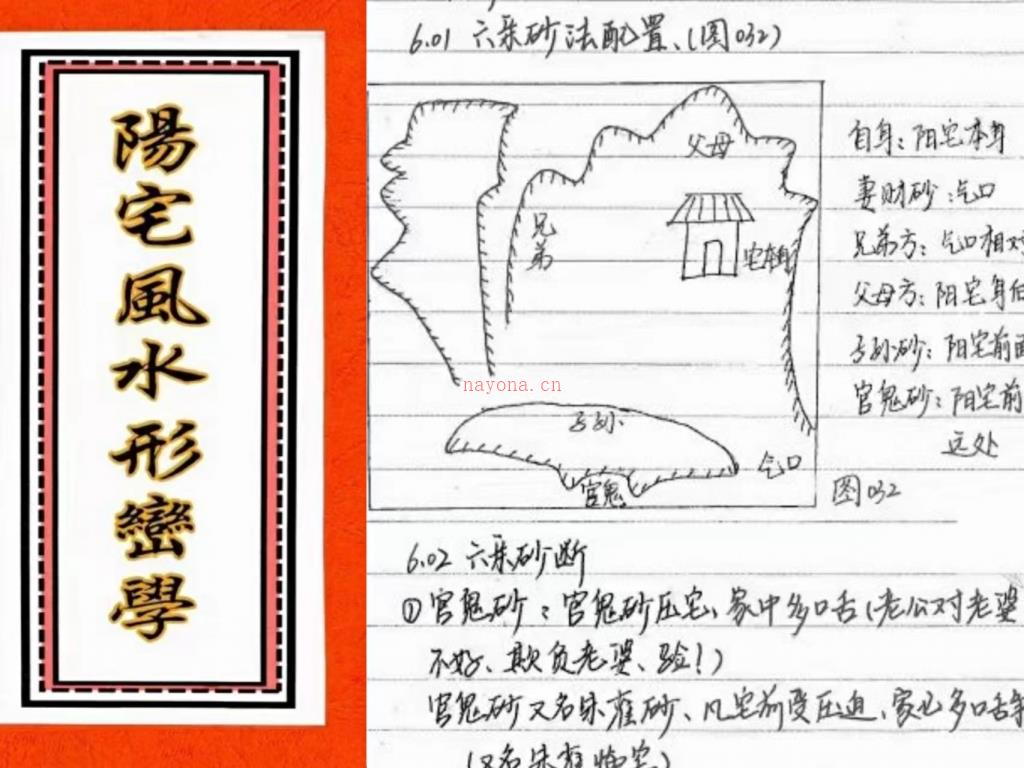 陽宅風水形巒學
6.01 六亲砂法配置、(图032)
父母
兄弟
宅本身
子孙
官鬼
气口
自身：阳宅本身
妻财砂：气口
兄弟方：气口相对
父母方：阳宅身后
子孙砂：阳宅前面
官鬼砂：阳宅前
远处
图032
nayona.cn
6.02 六亲砂断
①官鬼砂：官鬼砂压宅、家中多口舌(老公对老婆
不好、欺负老婆、验！)
官鬼砂又名朱雀砂、凡宅前受压迫、家也多口舌
(又名朱雀临宅)